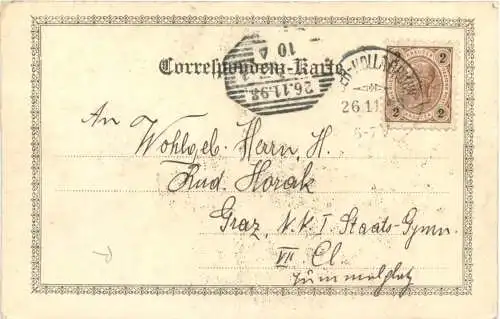 Correspondenz-Karte
10 A
26.11.98
26.11
6-7
2
2 2
An
Wohlgeb. Herrn, H.
Rud. Horak
Graz, N. K. I Staats-Gymn.
VII Cl.
Tummelplatz